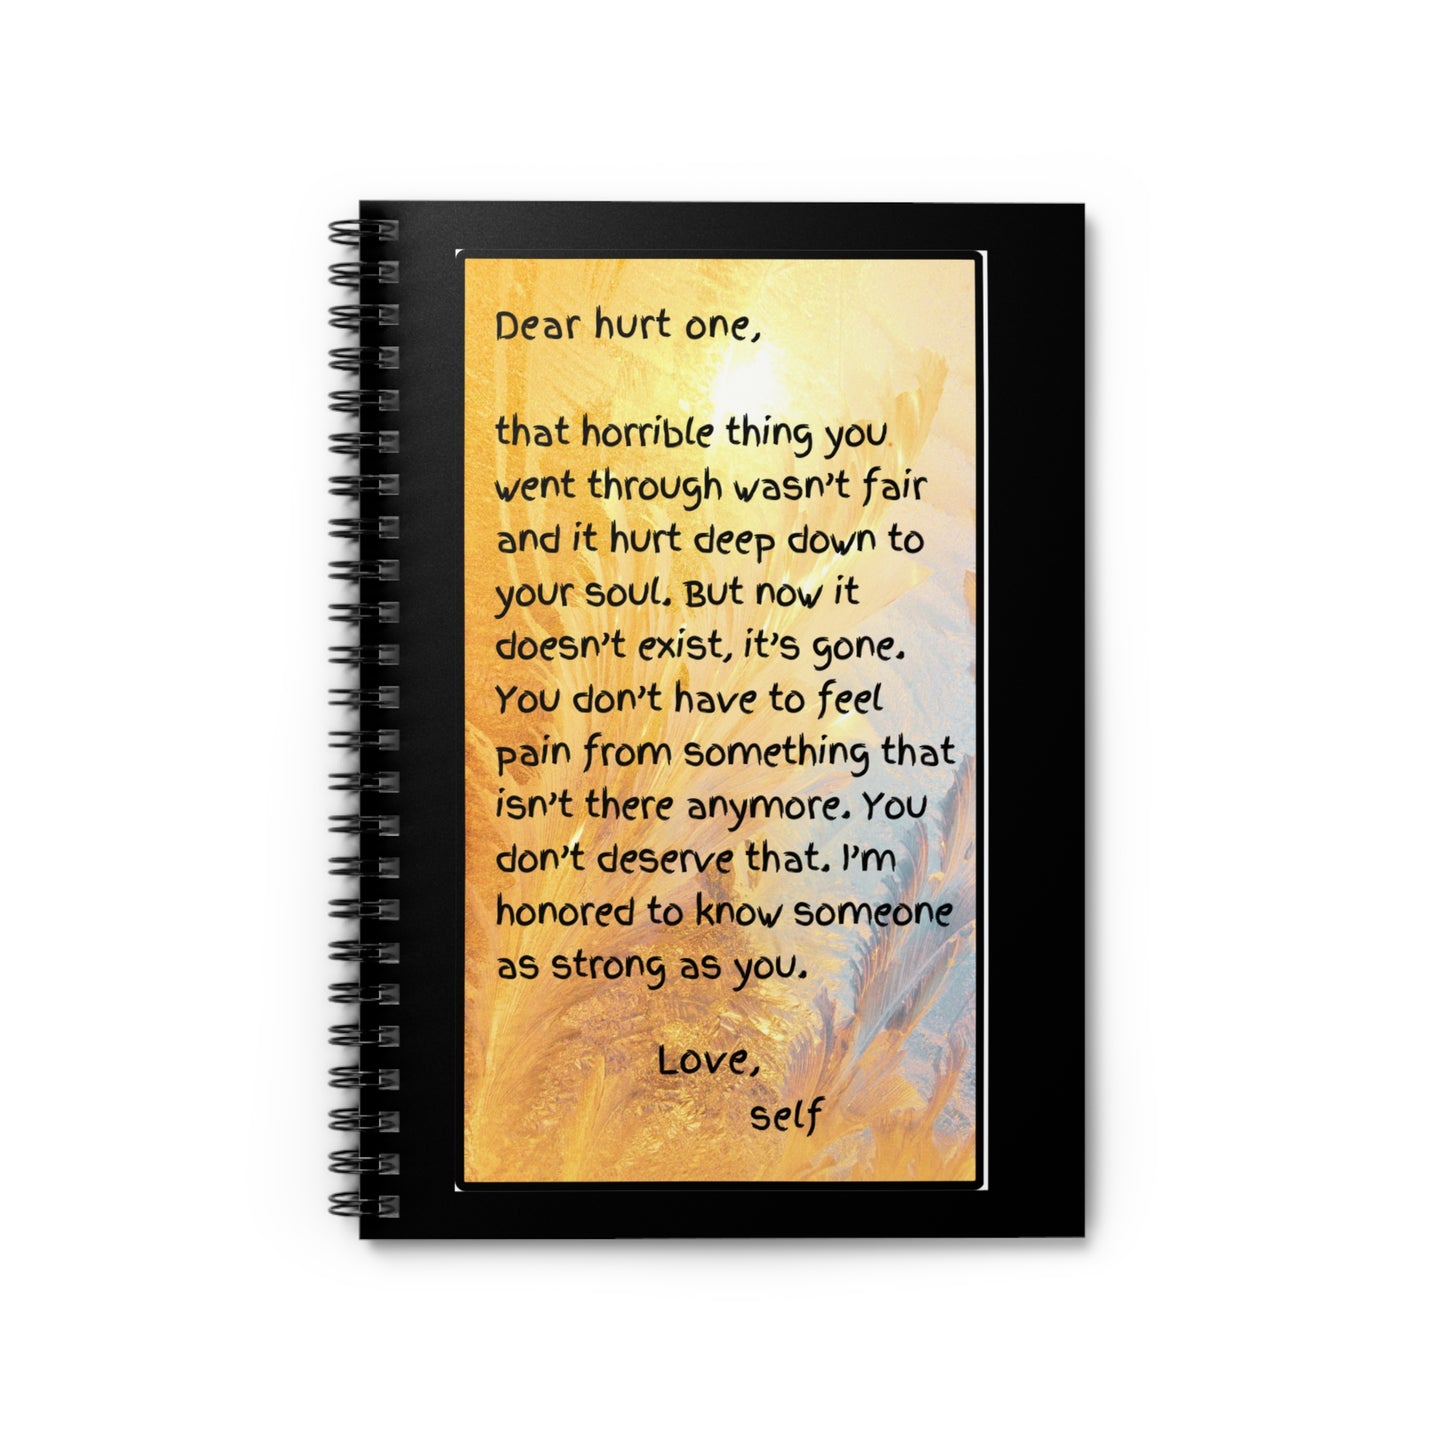 Dear hurt one,
that horrible thing you
went through wasn't fair
and it hurt deep down to
your soul. But now it
doesn't exist, it's gone.
You don't have to feel
pain from something that
isn't there anymore. You
don't deserve that. I'm
honored to know someone
as strong as you.
Love,
self